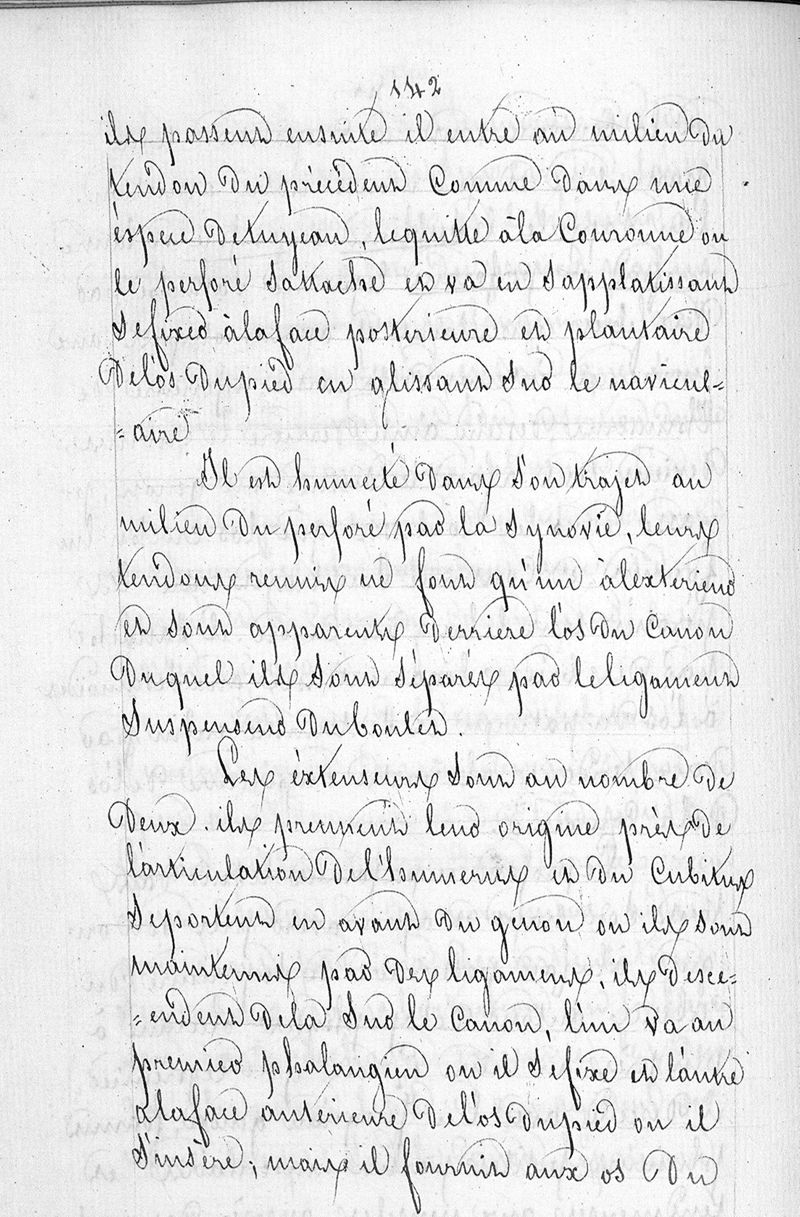 142
ils passent ensuite il entre au milieu du
tendon du précédent comme dans une
éspece detuyeau, lequitte àla Couronne ou
le perforé Sattache et va en Sapplatissant
Sefixer àlaface posterieure et plantaire
Delos Dupied en glissant Sur le navicul-
=aire
Il est humecté Dans Son trajet au
milieu Du perforé par la Synovie, leurs
tendons reunis ne font qu'un àlexterieur
et Sont apparents Derriere l'os Du Canon
Duquel ils Sont Séparés par leligament
Suspenseur Duboulet.
Les éxtenseurs Sont au nombre De
Deux. ils prennent leur origine près De
l'articulation De l'humerus et Du Cubitus
Seportent en avant Du genou ou ils Sont
maintenus par Des ligamens, ils Desce-
=endent Dela Sur le Canon, l'un va au
premier phalangien ou il Sefixe et l'autre
alaface antérieure Del'os Dupied ou il
S'insère; mais il fournit aux os Du